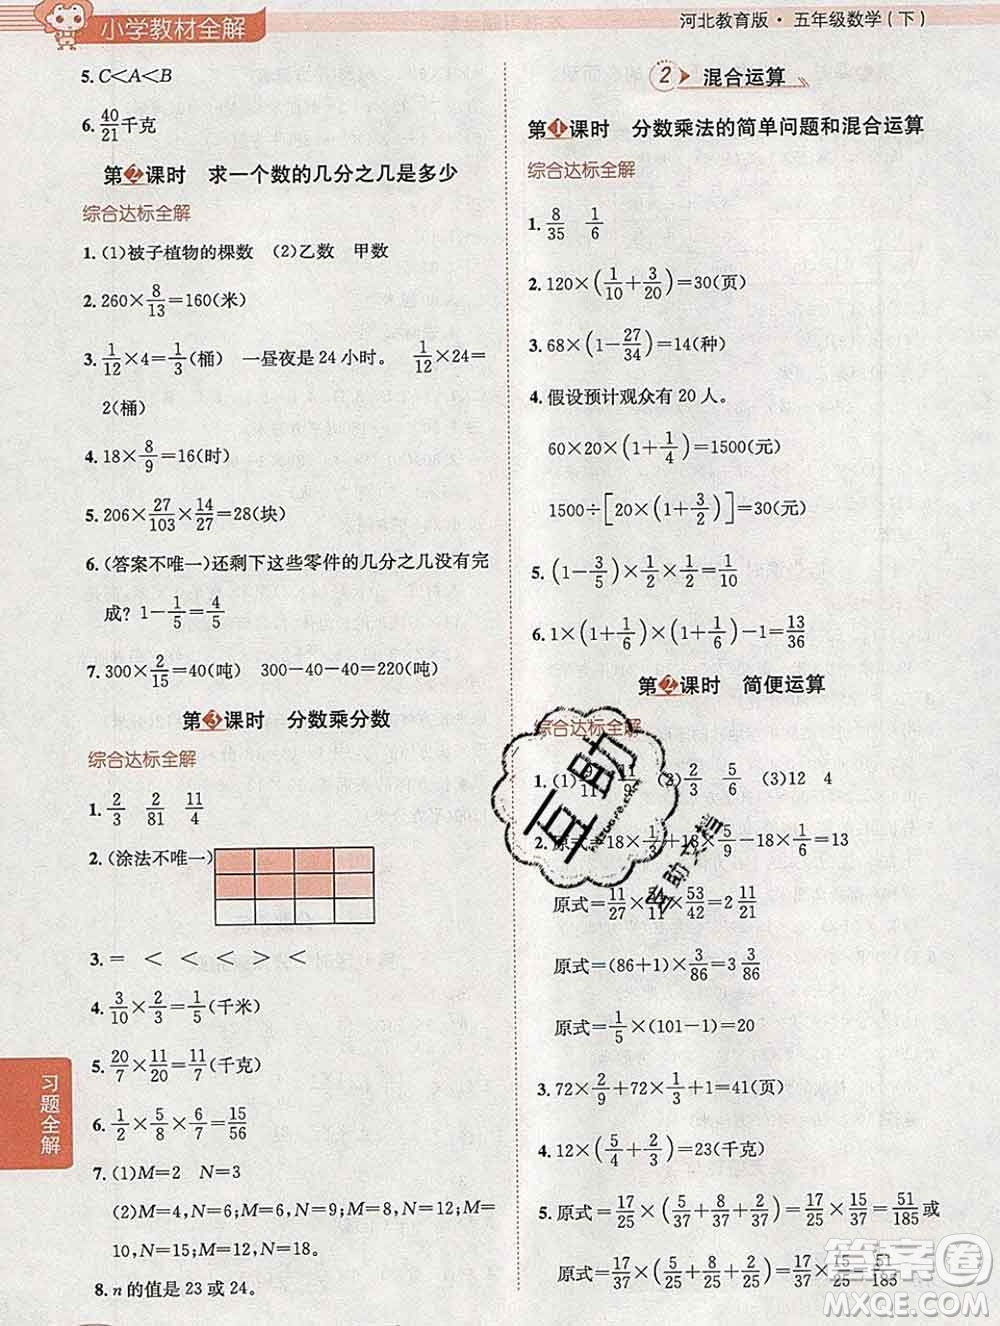 小学教材全解
河北教育版·五年级数学(下)
5. C<A<B
6. 40/21千克
第2课时 求一个数的几分之几是多少
综合达标全解
1. (1)被子植物的棵数 (2)乙数 甲数
2. 260×8/13=160(米)
3. 1/12×4=1/3(桶) 一昼夜是24小时。 1/12×24=
2(桶)
4. 18×8/9=16(时)
5. 206×27/103×14/27=28(块)
6. (答案不唯一)还剩下这些零件的几分之几没有完
成? 1-1/5=4/5
7. 300×2/15=40(吨) 300-40-40=220(吨)
第3课时 分数乘分数
综合达标全解
1. 2/3 2/81 11/4
2. (涂法不唯一)
3. = < < < > <
4. 3/10×2/3=1/5(千米)
5. 20/7×11/20=11/7(千克)
6. 1/2×5/8×6/7=15/56
7. (1)M=2 N=3
(2)M=4,N=6;M=6,N=9;M=8,N=12;M=
10,N=15;M=12,N=18。
8. n的值是23或24。
习题全解
2 混合运算
第1课时 分数乘法的简单问题和混合运算
综合达标全解
1. 8/35 1/6
2. 120×(1/10+3/20)=30(页)
3. 68×(1-27/34)=14(种)
4. 假设预计观众有20人。
60×20×(1+1/4)=1500(元)
1500÷[20×(1+3/2)]=30(元)
5. (1-3/5)×1/2×1/2=1/10
6. 1×(1+1/6)×(1+1/6)-1=13/36
第2课时 简便运算
综合达标全解
1. (1)9/11 11/9 (3)2/3 5/6 (3)12 4
2. 原式=18×1/3+18×5/9-18×1/6=13
原式=11/19×5/11×53/42=2 11/19
原式=(86+1)×3/86=3 3/86
原式=1/5×(101-1)=20
3. 72×2/9+72×1/8+1=41(页)
4. 12×(5/4+2/3)=23(千克)
5. 原式=17/25×(5/37+8/37+2/37)=17/25×15/37=51/185或
原式=17/37×(5/25+8/25+2/25)=17/37×15/25=51/185
互助
互助文档
答案圈
MXQE.COM